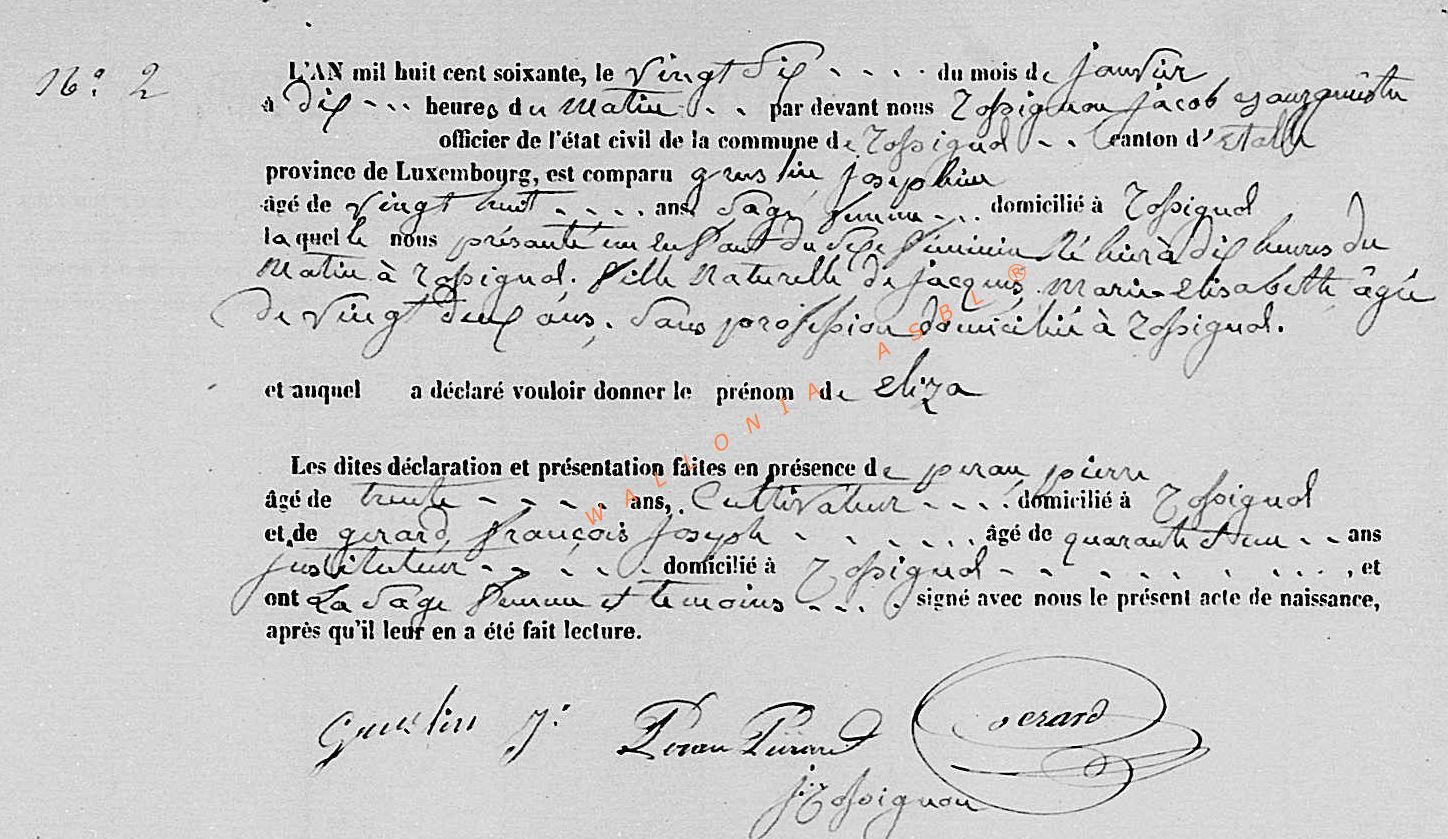 N° 2
L'AN mil huit cent soixante, le vingt six - - - - du mois de janvier
à dix - - - heures du matin - - par devant nous Rossignon jacob Bourgmestre
officier de l'état civil de la commune de Rossignol - - canton d'etalle
province de Luxembourg, est comparu gruslin josephine
âgé de vingt huit - - - - ans, sage femme - - - domicilié à Rossignol
laquelle nous présante un enfant du sexe féminin né hier à dix heures du
matin à Rossignol. fille naturelle de jacques, marie-elisabeth, âgée
de vingt deux ans, sans profession domiciliée à Rossignol.
et auquel a déclaré vouloir donner le prénom de eliza
Les dites déclaration et présentation faites en présence de peran pierre
âgé de trente - - - - - ans, Cultivateur - - - - domicilié à Rossignol
et de gerard, françois joseph - - - - - - âgé de quarante et un - - ans
justituteur - - - - - domicilié à Rossignol - - - - - - - - - , et
ont La sage femme et temoins - - - - signé avec nous le présent acte de naissance,
après qu'il leur en a été fait lecture.
WALLONIA ASBL ®
Gruslin J. Peran Gerard
J Rossignon